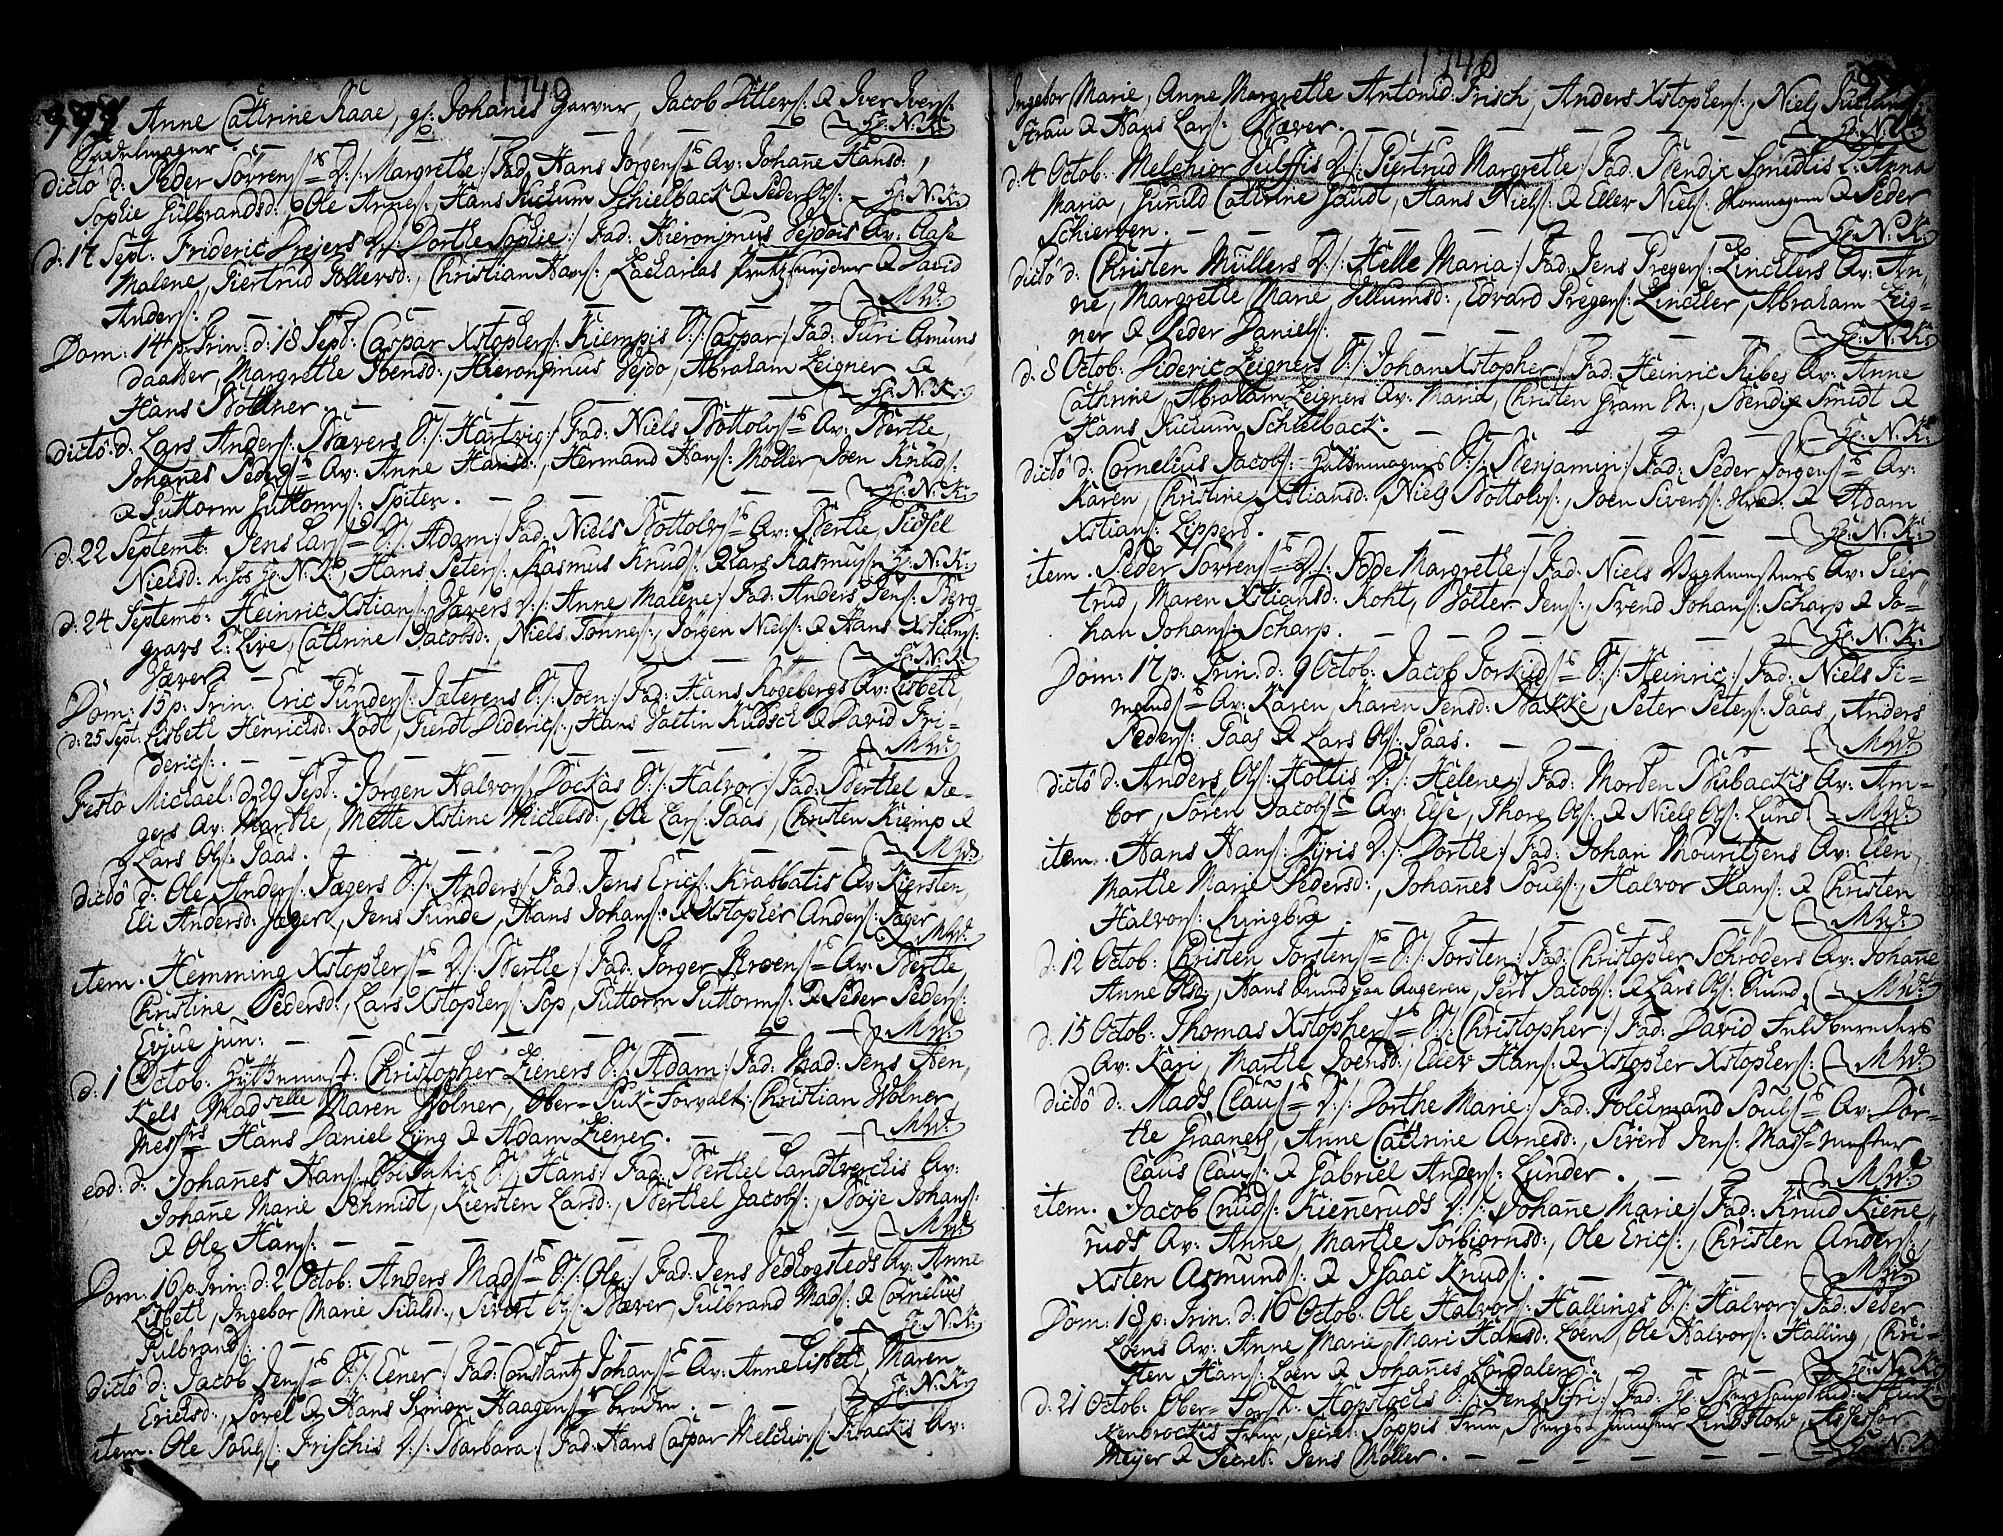 1740
Anne Cathrine Raae, Johanes Garver, Jacob Ditlevs: & Iver Ivers:
Sadelmager
dicto d: Peder Sörrens: D:/: Margrethe:/ Fad: Hans Jörgens: Av: Johañe Hansd:,
Sophie Gulbrandsd: Ole Arnes:, Hans Kickum Schielback & Peder Ols: Hr: N: K:
d: 17 Sept: Frideric Drejers D:/: Dorthe Sophie:/ Fad: Hieronymus Vejdois Av: Clase
Malene, Giertrud Tollersd:, Christian Hans: Zacharias & David
Anders:
Dom: 14 p: Trin: d: 18 Sept: Caspar Xstophers: Kiempis S:/: Caspar:/ Fad: Guri Amunds
daatter, Margrethe Joensd:, Hieronymus Vejdo, Abraham Zeigner &
Hans Böttkner. Hr: N: K:
dicto d: Lars Anders: Bævers S:/: Hartvig:/ Fad: Niels Bottolvs: Av: Berthe,
Johañes Peders: Av: Anne Hansd:, Hermand Hans: Möller Joen Knuds:
& Guttorm Guttorms: Spiten. Hr: N: K:
d: 22 Septemb: Jens Lars: S:/: Adam:/ Fad: Niels Bottolvs: Av: Berthe, Sidsel
Nielsd: hos Hr: N: K:, Hans Peters: Rasmus Knuds: & Lars Rasmus: Hr: N: K:
d: 24 Septemb: Heinric Xstians: Vævers D:/: Anne Malene:/ Fad: Anders Jens: Berg-
gravs L: Live, Cathrine Jacobsd:, Niels Tönnes:, Jörgen Niels: & Hans Xstians:
Væver. Hr: N: K:
Dom: 15 p: Trin: Eric Gunders: Sæterens S:/: Joen:/ Fad: Hans Kogebergs Av: Lisbeth,
d: 25 Sept: Lisbeth Henrichsd: Kodt, Gierdt Dideric:, Hans Vattin Kubsch & David Fri-
derics:. Mhd:
Festo Michael: d: 29 Sept: Jörgen Halvors: Dockas S:/: Halvor:/ Fad: Berthel Je-
gers Av: Marthe, Mette Xstine Michelsd:, Ole Lars: Paas, Christen Kiemp &
Lars Ols: Paas.
dicto d: Ole Anders: Jægers S:/: Anders:/ Fad: Jens Erics: Krabbatis Av: Kiersten,
Eli Andersd: Jæger, Jens Funde, Hans Johans: & Xstopher Anders: Jæger
item. Hemming Xstophers: D:/: Berthe:/ Fad: Torger Broens: Av: Berthe,
Christine Pedersd:, Lars Xstophers: Pop, Guttorm Guttorms: & Peder Peders:
Evjue jun:
d: 1 Octob: Christopher Zieners S:/: Adam:/ Fad: Mad: Jens Hen,
Kels Madselle Maren Wolner, Ober- Forvalt: Christian Wolner,
Messrs Hans Daniel Lyng & Adam Ziener.
eod: d: Johañes Hans: S:/: Hans:/ Fad: Berthel Landtverchis Av:
Johañe Marie Schmidt, Kiersten Larsd:, Berthel Jacobs:, Boye Johans:
& Ole Hans:
Dom: 16 p: Trin: d: 2 Octob: Anders Mads: S:/: Ole:/ Fad: Jens Vedlogsteds Av: Anne
Lisbeth, Ingebor Marie, Sivert Ols: Bæver, Gulbrand Mads: & Cornelius
Gulbrands:. Hr: N: K:
dicto d: Jacob Jens: S:/: Eener:/ Fad: Constantz Johans: Av: Anne Lisbeth, Maren
Erichsd:, Povel & Hans Simon Haagens: brödre. Hr: N: K:
item. Ole Pouls: Frischis D:/: Barbara:/ Fad: Hans Caspar Melchiors: Av:
1740
Ingebor Marie, Anne Margrethe Antonid: Frisch, Anders Xstophers:, Niels
Frau & Hans Lars: Bæver. Hr: N: K:
d: 4 Octob: Melchior D:/: Giertrud Margrethe:/ Fad: Bendix Smidtis L: Anna
Maria, Guñild Cathrine Gaudt, Hans Niels: & Eller Niels: & Peder
Schierven. Hr: N: K:
dicto d: Christen Müllers D:/: Helle Maria:/ Fad: Jens Pregers: Linchlers Av: An-
ne, Margrethe Marie Illumsd:, Edvard Pregers: Linchler, Abraham Zeig-
ner & Peder Daniels:. Hr: N: K:
d: 8 Octob: Dideric Zeigners S:/: Johan Xstopher:/ Fad: Heinric Ribes Av: Anne
Cathrine, Abraham Zeigners Av: Maria, Christen Gram, Bendix Smidt &
Hans Kickum Schielback. Hr: N: K:
dicto d: Cornelius Jacobs: S:/: Benjamin:/ Fad: Peder Jörgens: Av:
Karen, Christine Xstiansd:, Niels Bottolvs:, Joen Sivers: & Adam
Xstians: Lippert. Hr: N: K:
item. Peder Sörrens: D:/: Margrethe:/ Fad: Niels Vagtmesters Av: Gier-
trud, Maren Xstiansd: Koht, Volter Jens:, Svend Johans: Scharp & Jo-
han Johans: Scharp. Hr: N: K:
Dom: 17 p: Trin: d: 9 Octob: Jacob Torkilds: S:/: Heinric:/ Fad: Niels Si-
mends: Av: Karen, Karen Jensd: Bakke, Peter Peters: Paas, Anders
Peders: Paas & Lars Ols: Paas.
dicto d: Anders Ols: Holtis D:/: Helene:/ Fad: Morten Bubackis Av: Am-
bor, Sören Jacobs: Av: Else, Thore Ols: & Niels Ols: Lund
item. Hans Hans: Dyris D:/: Dorthe:/ Fad: Johan Mouritzens Av: Elen,
Marthe Marie Pedersd:, Johañes Pouls:, Halvor Hans: & Christen
Halvors: Ringbye
d: 12 Octob: Christen Torstens: S:/: Torsten:/ Fad: Christopher Schröders Av: Johañe
Anne Olsd:, Hans Rund paa Augeren, Pert Jacobs: & Lars Ols: Rund.
d: 15 Octob: Thomas Xstophers: S:/: Christopher:/ Fad: David Feldbereders
Av: Kari, Marthe Joensd:, Ellev Hans: & Xstopher Xstophers:
dicto d: Mads Claus: D:/: Dorthe Marie:/ Fad: Folckmand Pouls: Av: Dor-
the Graaners, Anne Cathrine Arnesd:, Sivert Jens: Mass-mester
Claus Claus: & Gabriel Anders: Lunder.
item. Jacob Cnuds: Kieñeruds D:/: Johañe Marie:/ Fad: Knud Kieñe-
ruds Av: Anne, Marthe Torbiörnsd:, Ole Erics:, Christen Anders:,
Xsten Asmunds: & Isaac Knuds:.
Dom: 18 p: Trin: d: 16 Octob: Ole Halvors: Hallings S:/: Halvor:/ Fad: Peder
Loens Av: Anne Marie, Mari Hansd: Loen, Ole Halvors: Halling, Chri-
sten Hans: Loen & Johañes Lördalen. Hr: N: K:
d: 21 Octob: Ober- Hopstochs S:/: Jens:/ Fad: Hr:
Frue, Secret: Poppis Frue, Jumfrue Lindstow, Assessor
Meyer & Secret: Jens Möller. Hr: N: K: